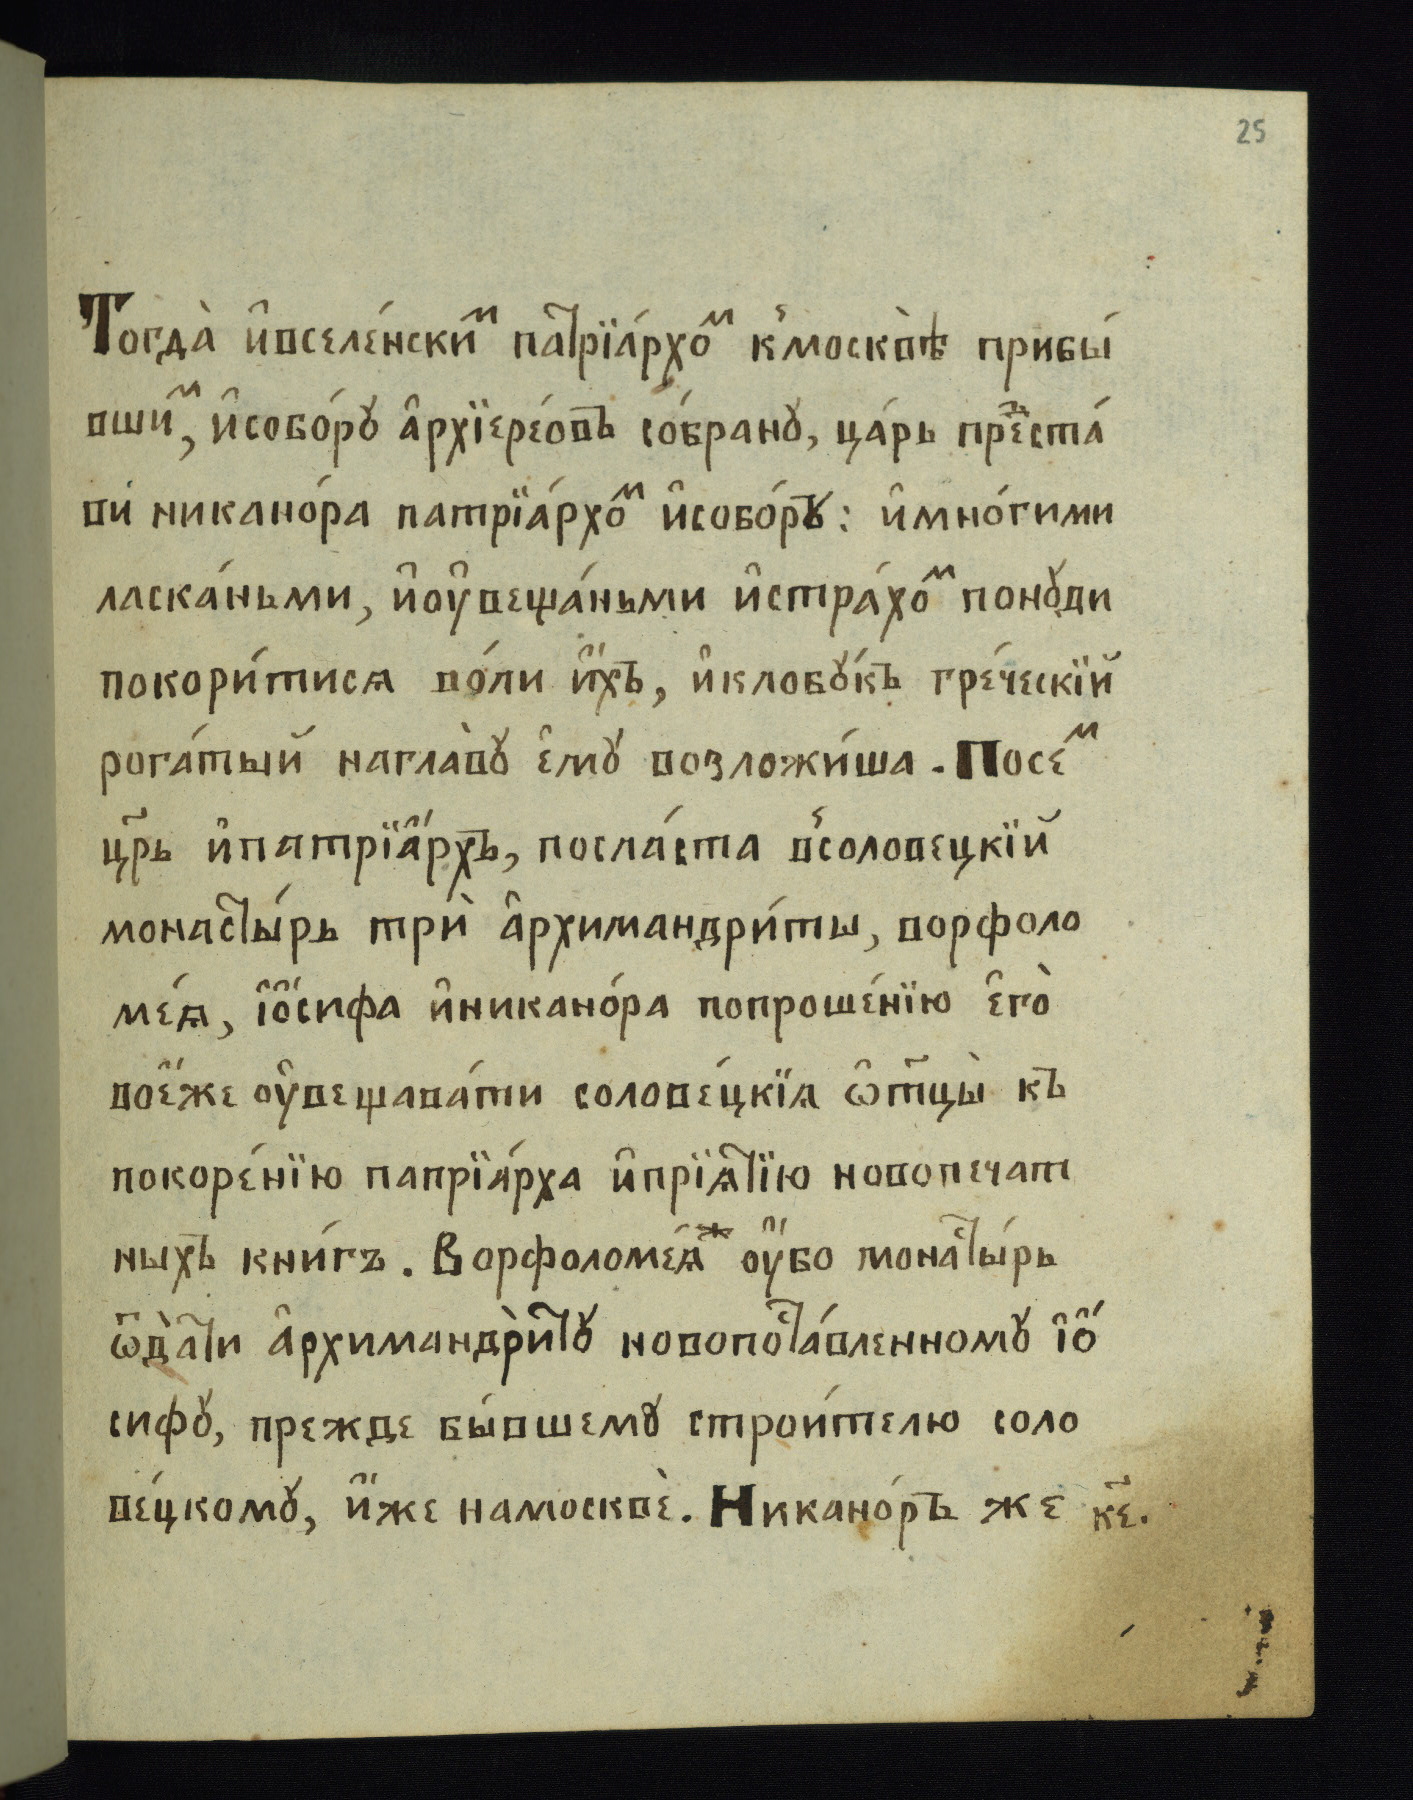 25
Тогда̀ и҆вселе́нскиⷨ патⷬрїа́рхоⷨ къ москвѣ̀ прибы́
вшиⷨ, и҆собо́рꙋ а҆рхїере́ѡвъ со́бранꙋ, ца́рь преⷣста́
ви никано́ра патрїа́рхоⷨ и҆собо́рꙋ: и҆мно́гими
ласка́ньми, и҆ оу҆веща́ньми и҆стра́хоⷨ понꙋди
покори́тисѧ во́ли и҆́хъ, и҆клобꙋ́къ гре́ческїй
рога́тый наглавꙋ̀ є҆мꙋ̀ возложи́ша. Посе́ⷨ
цр҃ь и҆патрїа́рхъ, посла́ста в̾соловецкїй
монасты́рь трѝ а҆рхимандри́ты, ворфоло
ме́ѧ, і҆ѡ́сифа и҆никано́ра попроше́нїю є҆го̀
вое́же оу҆вещава́ти солове́цкїѧ ѡ҆тц҃ы̀ къ
покоре́нїю папрїа́рха и҆прїѧ́тїю новопечат
ныхъ кни́гъ. Ворфоломе́ѧⷤ оу҆́бо монасты́рь
ѿда́ти а҆рхимандри́тꙋ новопоста́вленномꙋ і҆о́
сифꙋ, прежде бы́вшемꙋ строи́телю соло
ве́цкомꙋ, и҆́же намосквѐ. Никано́ръ же к҃е.